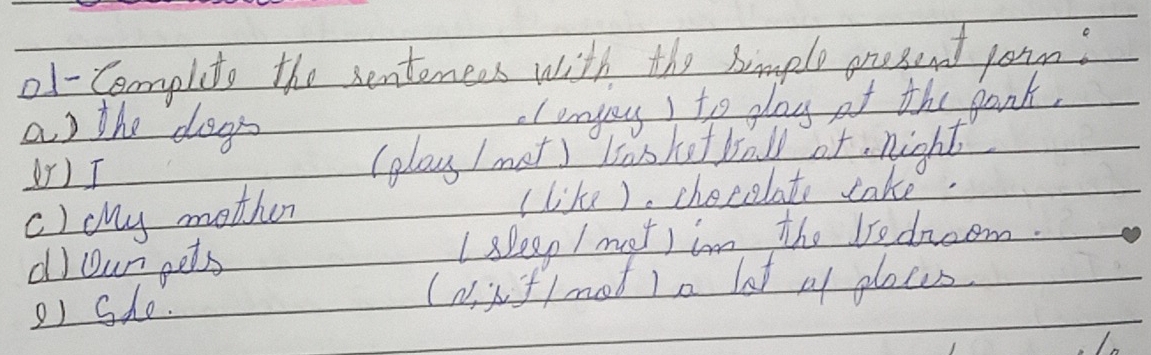 01-Complete the sentences with the simple present form:
a) The dogs (enjoy) to play at the park.
b) I (play/not) basketball at night.
c) My mother (like). chocolate cake.
d) Our pets (sleep/not) in the bedroom.
e) She. (visit/not) a lot of places.